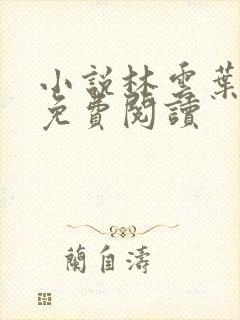 小說林雲葉
免費閱讀
蘭自濤